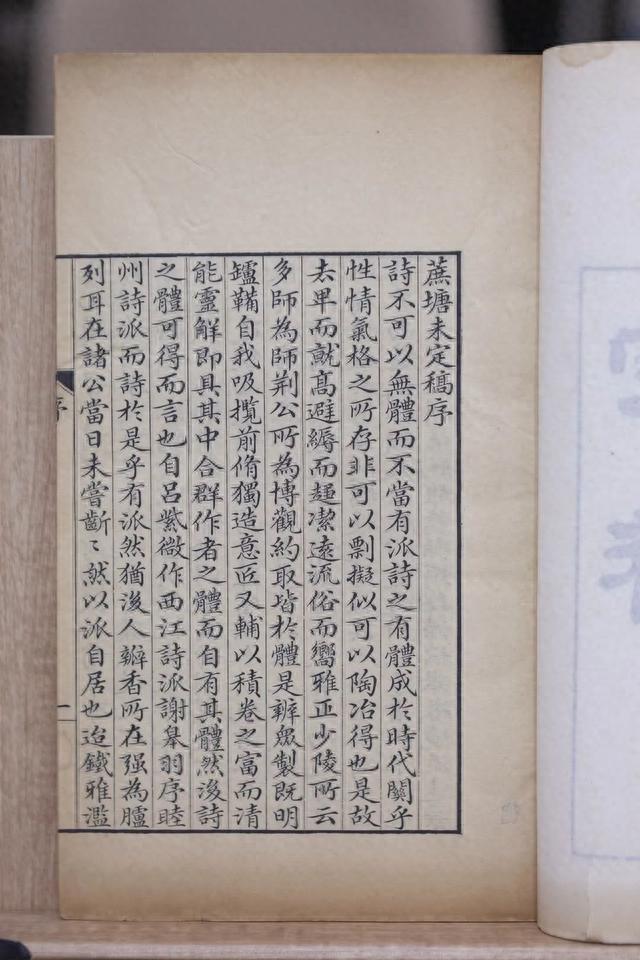 蕪塘未定稿序
詩不可以無體而不當有派詩之有體成於時代關乎
性情氣格之所存非可以剽擬似可以陶冶得也是故
去𤰞而就髙避縟而趨潔遠流俗而嚮雅正少陵所云
多師為師荆公所為博觀約取皆於體是辨衆製既明
鑪鞴自我吸攬前脩獨造意匠又輔以積卷之富而清
能靈解即具其中合群作者之體而自有其體然後詩
之體可得而言也自吕紫微作西江詩派謝皋羽序睦
州詩派而詩於是乎有派然猶後人瓣香所在强為臚
列耳在諸公當日未嘗齗〻然以派自居也迨鐵雅濫
序
一